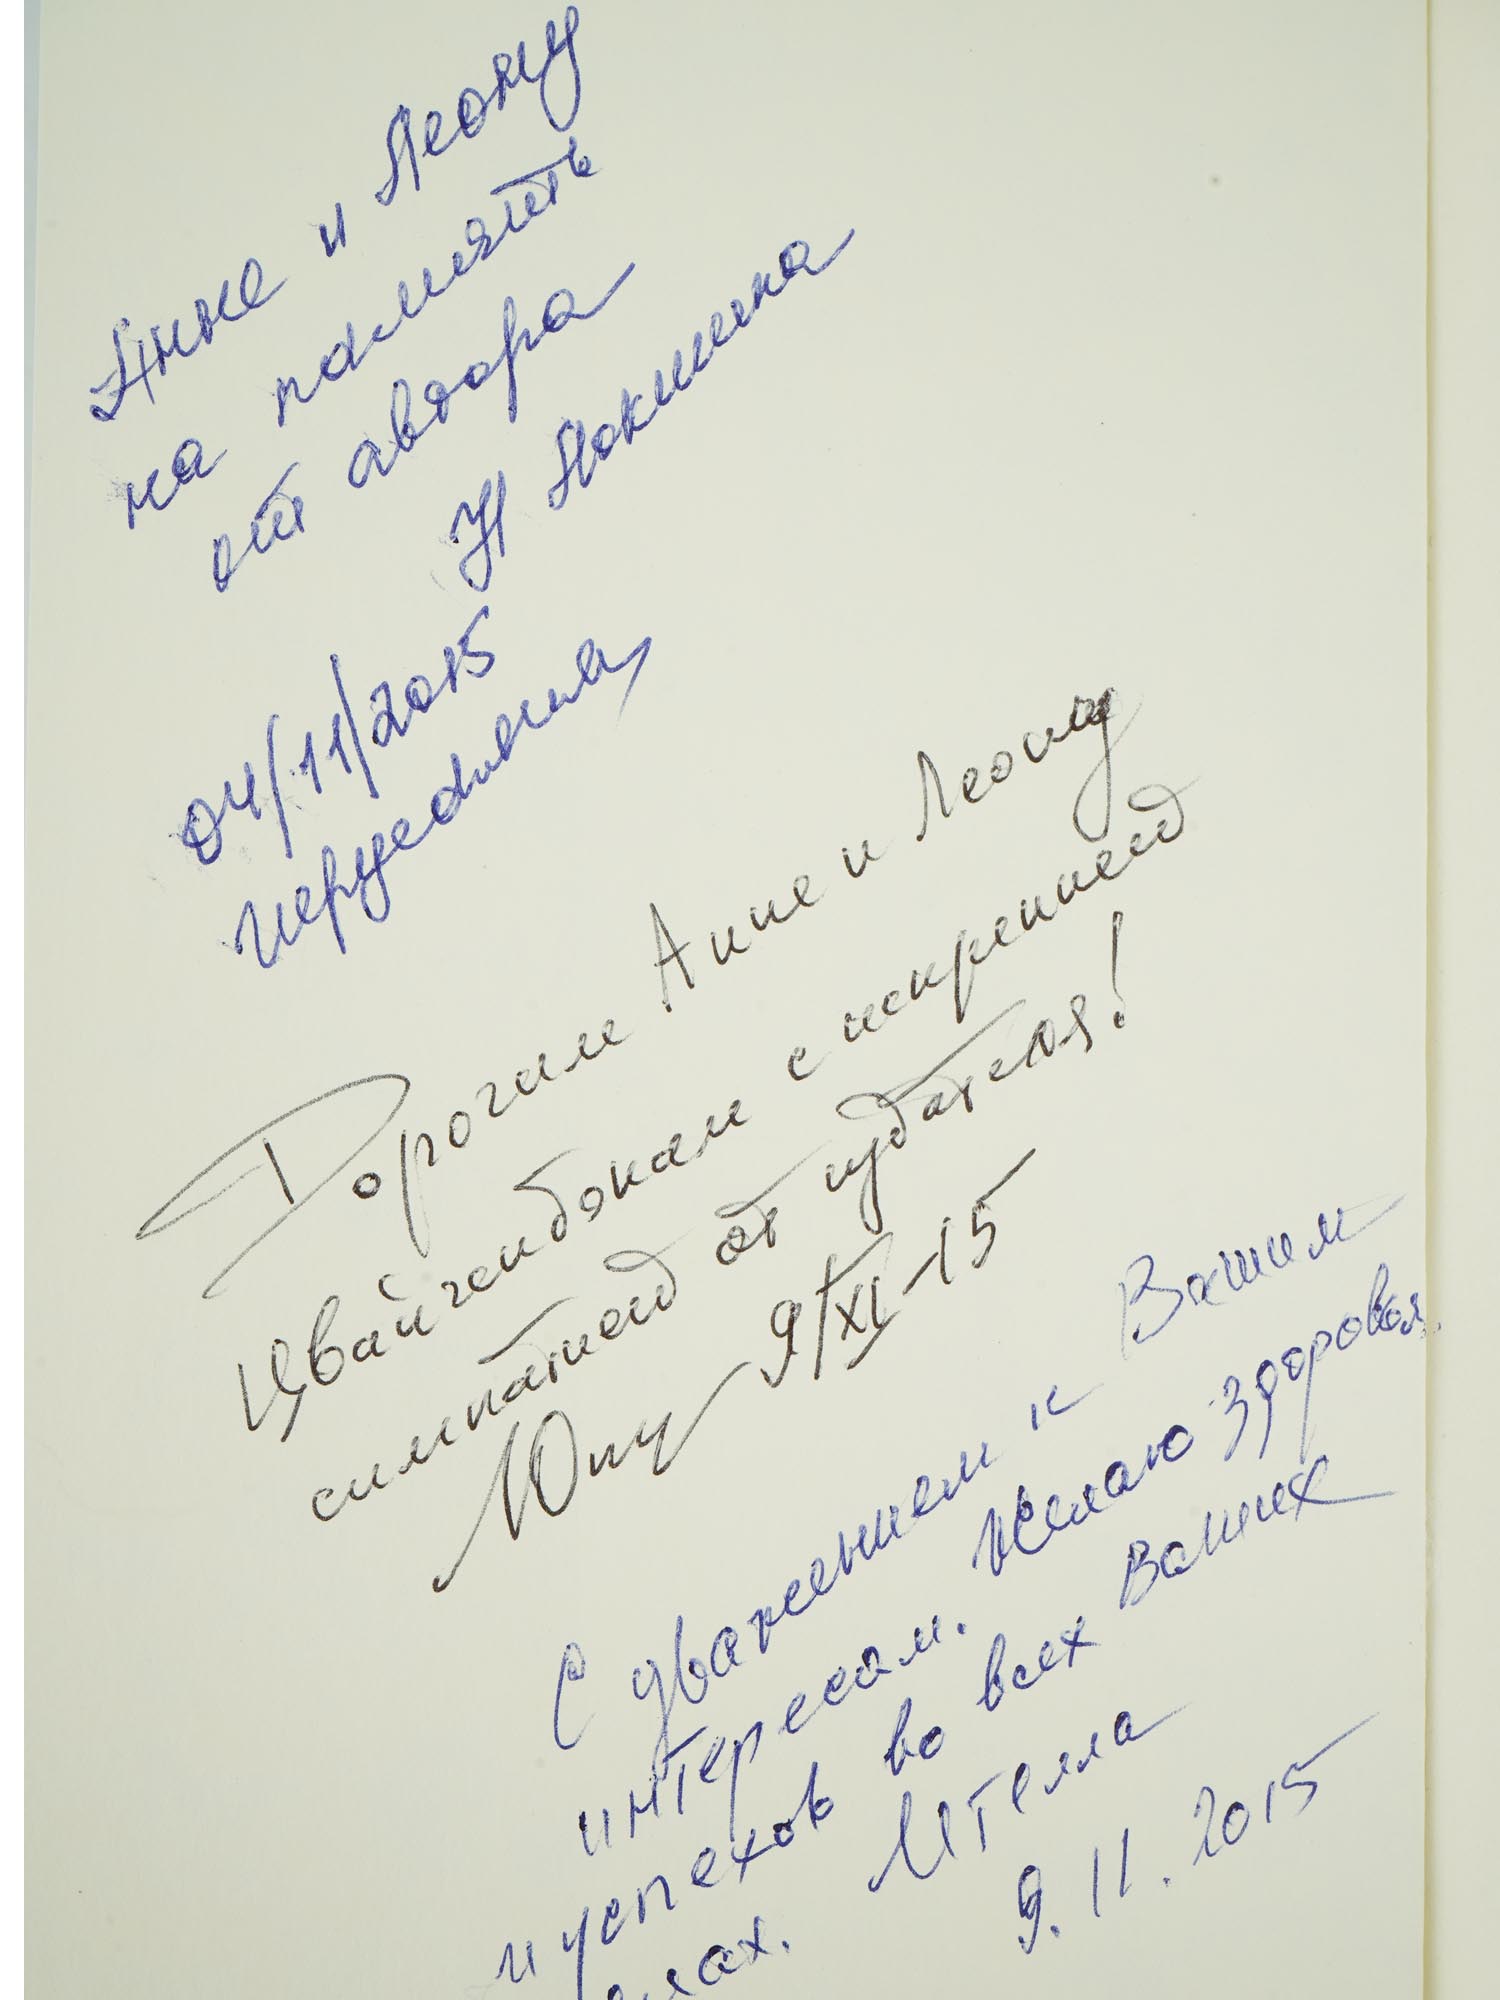 Анне и Леону
на память
от автора
Н
04/11/2015
Иерусалим
Дорогим Анне и Леону
Цвайгенбокам с искренней
симпатией от издателя!
9/XI-15
С уважением к Вашим
интересам. Желаю здоровья
и успехов во всех Ваших
9.11.2015